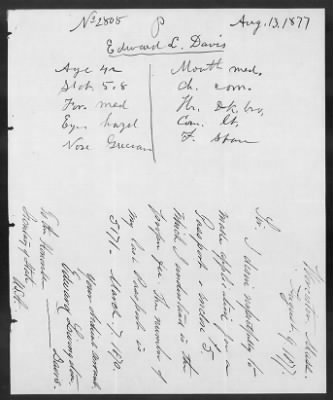 No 2808 P Aug. 13. 1877
Edward L. Davis
Age 42
Stat. 5.8
For. med
Eyes hazel
Nose Grecian
Mouth med.
Ch. com.
Hr. Dk. bro.
Com. lt.
F.
Worcester Mass.
August 9, 1877.
Sir. I desire respectfully to
make application for a
Passport & enclose $5
which I understand is the
proper fee. The number of
my last Passport is
5171- March. 7. 1870.
Your obedient servant
Edward Livingston
Davis.
To the Honorable
Secretary State
U.S.A.